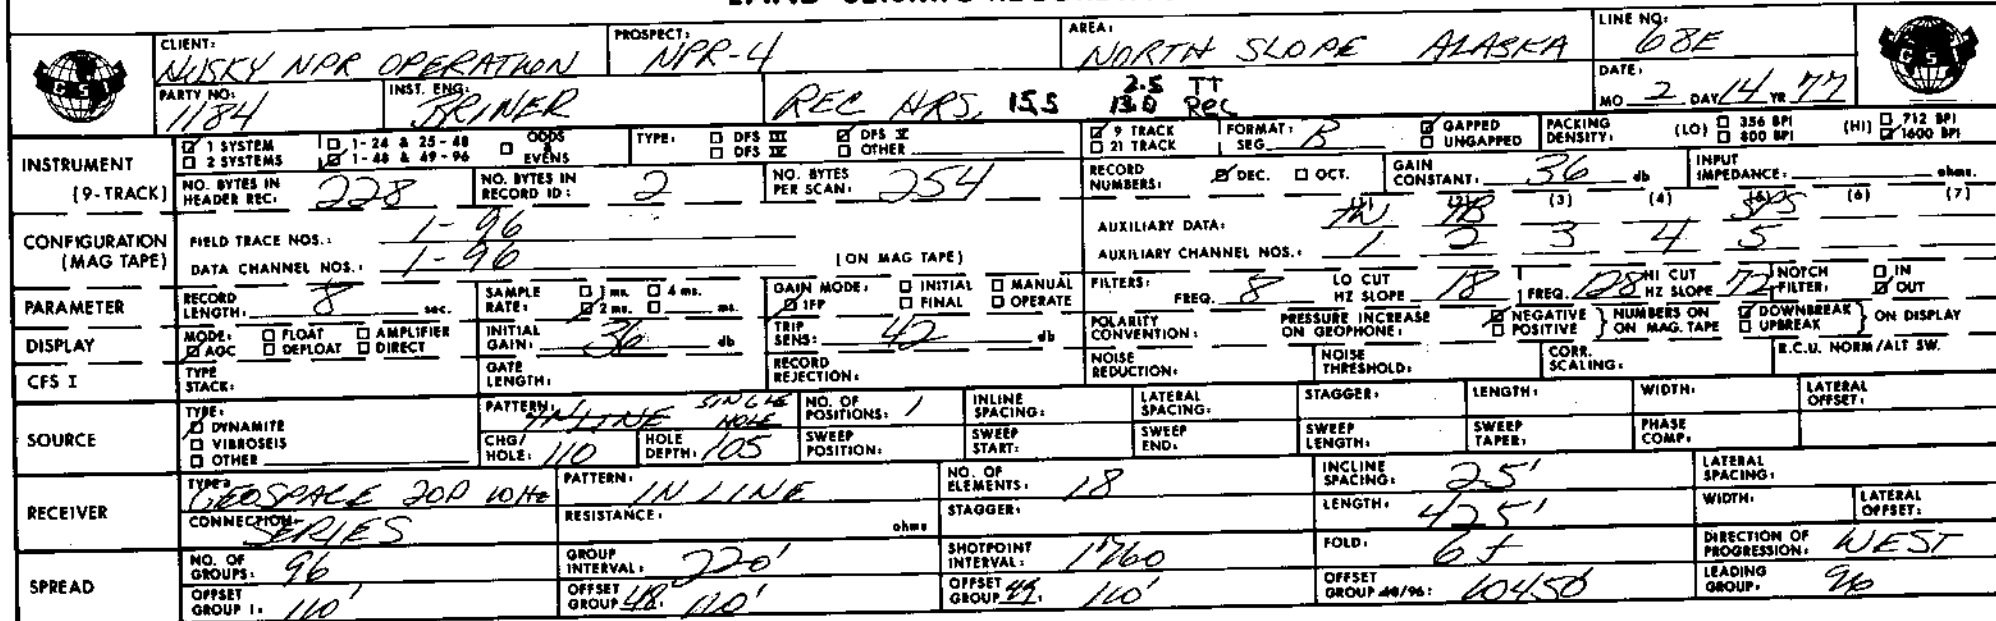 CLIENT: NUSKY NPR OPERATION PROSPECT: NPR-4 AREA: NORTH SLOPE ALASKA LINE NO: 68E
GSI GSI
PARTY NO: 1184 INST. ENG: BRINER REC HRS. 15.5 2.5 TT 13.0 REC DATE: MO 2 DAY 14 YR 77
INSTRUMENT (9-TRACK) ☑ 1 SYSTEM ☐ 1-24 & 25-48 ☐ ODDS & EVENS TYPE: ☐ DFS III ☑ DFS V ☑ 9 TRACK FORMAT: SEG B ☑ GAPPED PACKING DENSITY: (LO) ☐ 356 BPI (HI) ☐ 712 BPI
☐ 2 SYSTEMS ☑ 1-48 & 49-96 ☐ DFS IV ☐ OTHER ☐ 21 TRACK ☐ UNGAPPED ☐ 800 BPI ☑ 1600 BPI
NO. BYTES IN HEADER REC: 228 NO. BYTES IN RECORD ID: 2 NO. BYTES PER SCAN: 254 RECORD NUMBERS: ☑ DEC. ☐ OCT. GAIN CONSTANT: 36 db INPUT IMPEDANCE: ohms.
CONFIGURATION (MAG TAPE) FIELD TRACE NOS.: 1-96 AUXILIARY DATA: (1) (2) TB (3) (4) (5) (6) (7)
DATA CHANNEL NOS.: 1-96 (ON MAG TAPE) AUXILIARY CHANNEL NOS.: 1 2 3 4 5
PARAMETER RECORD LENGTH: 8 sec. SAMPLE RATE: ☐ 1 ms. ☐ 4 ms. ☑ 2 ms. ☐ ms. GAIN MODE: ☐ INITIAL ☐ MANUAL ☑ IFP ☐ FINAL ☐ OPERATE FILTERS: FREQ. 8 LO CUT HZ SLOPE 18 FREQ. 128 HI CUT HZ SLOPE 72 NOTCH FILTER: ☐ IN ☑ OUT
DISPLAY MODE: ☐ FLOAT ☐ AMPLIFIER ☑ AGC ☐ DEFLOAT ☐ DIRECT INITIAL GAIN: 36 db TRIP SENS: 42 db POLARITY CONVENTION: PRESSURE INCREASE ON GEOPHONE: ☑ NEGATIVE ☐ POSITIVE } NUMBERS ON MAG. TAPE ☑ DOWNBREAK ☐ UPBREAK } ON DISPLAY
CFS I TYPE STACK: GATE LENGTH: RECORD REJECTION: NOISE REDUCTION: NOISE THRESHOLD: CORR. SCALING: R.C.U. NORM/ALT SW.
SOURCE TYPE: ☑ DYNAMITE ☐ VIBROSEIS ☐ OTHER PATTERN: INLINE SINGLE HOLE NO. OF POSITIONS: 1 INLINE SPACING: LATERAL SPACING: STAGGER: LENGTH: WIDTH: LATERAL OFFSET:
CHG/HOLE: 110 HOLE DEPTH: 105 SWEEP POSITION: SWEEP START: SWEEP END: SWEEP LENGTH: SWEEP TAPER: PHASE COMP:
RECEIVER TYPE: GEOSPACE 20D 10Hz PATTERN: IN LINE NO. OF ELEMENTS: 18 INCLINE SPACING: 25' LATERAL SPACING:
CONNECTION: SERIES RESISTANCE: ohms STAGGER: LENGTH: 425' WIDTH: LATERAL OFFSET:
SPREAD NO. OF GROUPS: 96 GROUP INTERVAL: 220' SHOTPOINT INTERVAL: 1760 FOLD: 6 f DIRECTION OF PROGRESSION: WEST
OFFSET GROUP 1: 110' OFFSET GROUP 48: 110' OFFSET GROUP 49: 110' OFFSET GROUP 48/96: 10450' LEADING GROUP: 96